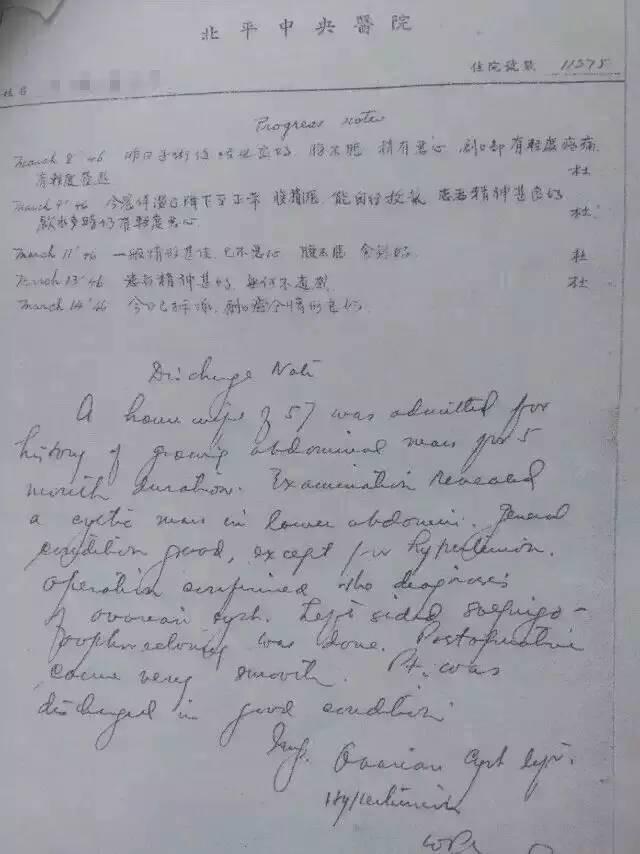 北平中央醫院
姓名
住院號數 11375
Progress Notes
March 8 '46 昨日手術後經過良好. 腹不脹 稍有惡心 創口部有輕度疼痛
有輕度 杜
March 9 '46 今晨体溫已降下至正常 腹稍脹 能自 患者精神甚良好
飲水多時仍有輕度惡心 杜
March 11 '46 一般情形甚佳, 已不惡心 腹不脹 食 好. 杜
March 13 '46 患者精神甚好, 無何不適 杜
March 14 '46 今日已拆線, 創口癒合情形良好.
Discharge Note
A housewife of 57 was admitted for
history of growing abdominal mass for 5
month duration. Examination revealed
a cystic mass in lower abdomen. General
condition good, except for hypertension.
Operation confirmed the diagnosis
of ovarian cyst. Left sided salpingo-
oophorectomy was done. Postoperative
course very smooth. Pt. was
discharged in good condition
Imp. Ovarian Cyst left.
Hypertension